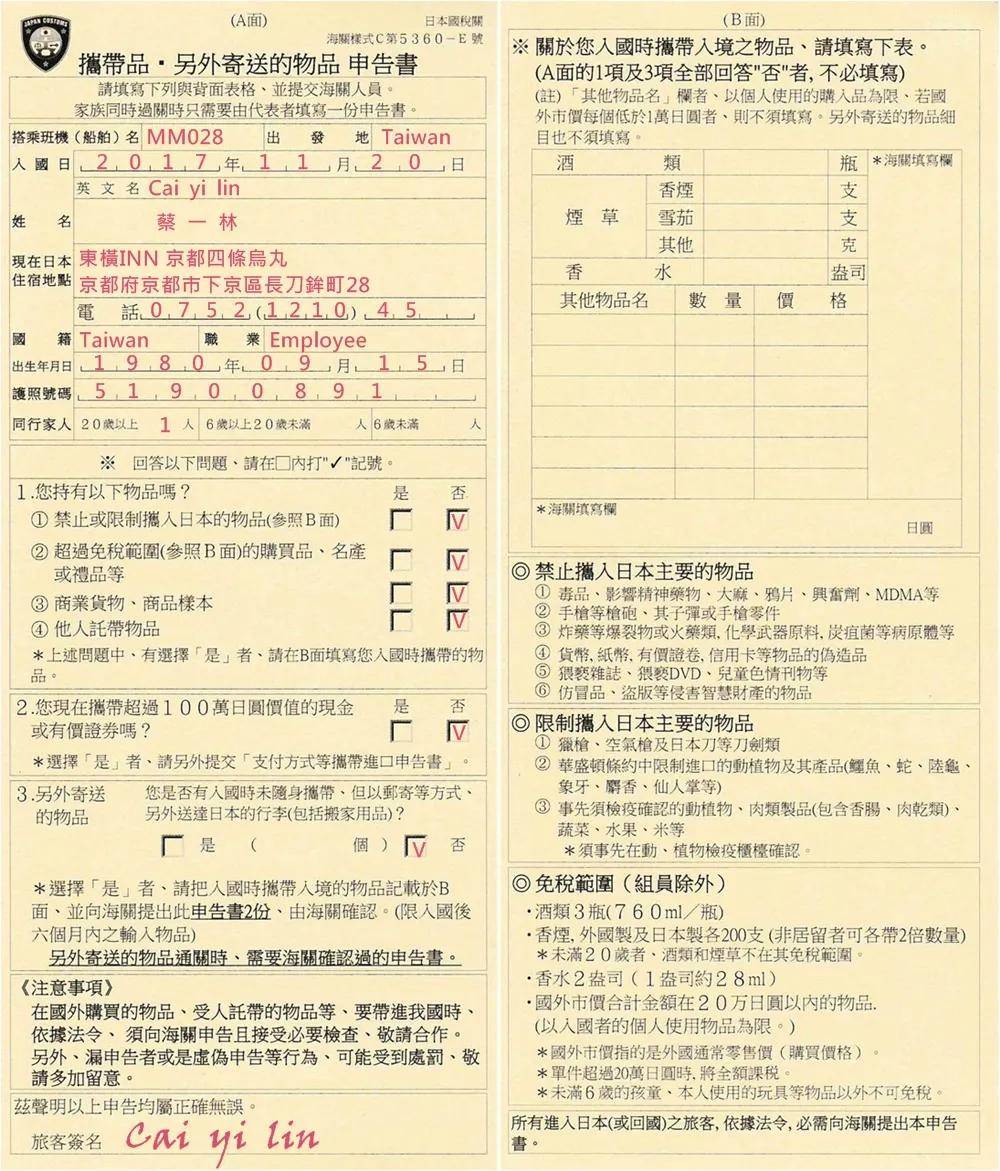 (A面)
日本國稅關
JAPAN CUSTOMS
海關樣式C第5360-E號
攜帶品・另外寄送的物品 申告書
請填寫下列與背面表格、並提交海關人員。
家族同時過關時只需要由代表者填寫一份申告書。
搭乘班機(船舶)名 MM028 出發地 Taiwan
入國日 2017年11月20日
英文名 Cai yi lin
姓名 蔡一林
現在日本住宿地點 東橫INN 京都四條烏丸
京都府京都市下京區長刀鉾町28
電話 0752(1210)45
國籍 Taiwan 職業 Employee
出生年月日 1980年09月15日
護照號碼 519000891
同行家人 20歲以上 1人 6歲以上20歲未滿 人 6歲未滿 人
※ 回答以下問題、請在□內打"✓"記號。
1.您持有以下物品嗎? 是 否
① 禁止或限制攜入日本的物品(參照B面) V
② 超過免稅範圍(參照B面)的購買品、名產
或禮品等 V
③ 商業貨物、商品樣本 V
④ 他人託帶物品 V
*上述問題中、有選擇「是」者、請在B面填寫您入國時攜帶的物
品。
2.您現在攜帶超過100萬日圓價值的現金 是 否
或有價證券嗎? V
*選擇「是」者、請另外提交「支付方式等攜帶進口申告書」。
3.另外寄送的物品 您是否有入國時未隨身攜帶、但以郵寄等方式、
另外送達日本的行李(包括搬家用品)?
是 ( 個 ) V 否
*選擇「是」者、請把入國時攜帶入境的物品記載於B
面、並向海關提出此申告書2份、由海關確認。(限入國後
六個月內之輸入物品)
另外寄送的物品通關時、需要海關確認過的申告書。
《注意事項》
在國外購買的物品、受人託帶的物品等、要帶進我國時、
依據法令、須向海關申告且接受必要檢查、敬請合作。
另外、漏申告者或是虛偽申告等行為、可能受到處罰、敬
請多加留意。
茲聲明以上申告均屬正確無誤。
旅客簽名 Cai yi lin
(B面)
※ 關於您入國時攜帶入境之物品、請填寫下表。
(A面的1項及3項全部回答"否"者, 不必填寫)
(註)「其他物品名」欄者、以個人使用的購入品為限、若國
外市價每個低於1萬日圓者、則不須填寫。另外寄送的物品細
目也不須填寫。
酒類 瓶 *海關填寫欄
煙草 香煙 支
雪茄 支
其他 克
香水 盎司
其他物品名 數量 價格
*海關填寫欄
日圓
◎ 禁止攜入日本主要的物品
① 毒品、影響精神藥物、大麻、鴉片、興奮劑、MDMA等
② 手槍等槍砲、其子彈或手槍零件
③ 炸藥等爆裂物或火藥類, 化學武器原料, 炭疽菌等病原體等
④ 貨幣, 紙幣, 有價證卷, 信用卡等物品的偽造品
⑤ 猥褻雜誌、猥褻DVD、兒童色情刊物等
⑥ 仿冒品、盜版等侵害智慧財產的物品
◎ 限制攜入日本主要的物品
① 獵槍、空氣槍及日本刀等刀劍類
② 華盛頓條約中限制進口的動植物及其產品(鱷魚、蛇、陸龜、
象牙、麝香、仙人掌等)
③ 事先須檢疫確認的動植物、肉類製品(包含香腸、肉乾類)、
蔬菜、水果、米等
*須事先在動、植物檢疫櫃檯確認。
◎ 免稅範圍(組員除外)
・酒類3瓶(760ml/瓶)
・香煙, 外國製及日本製各200支 (非居留者可各帶2倍數量)
*未滿20歲者、酒類和煙草不在其免稅範圍。
・香水2盎司(1盎司約28ml)
・國外市價合計金額在20万日圓以內的物品.
(以入國者的個人使用物品為限。)
*國外市價指的是外國通常零售價(購買價格)。
*單件超過20萬日圓時, 將全額課稅。
*未滿6歲的孩童、本人使用的玩具等物品以外不可免稅。
所有進入日本(或回國)之旅客, 依據法令, 必需向海關提出本申告
書。